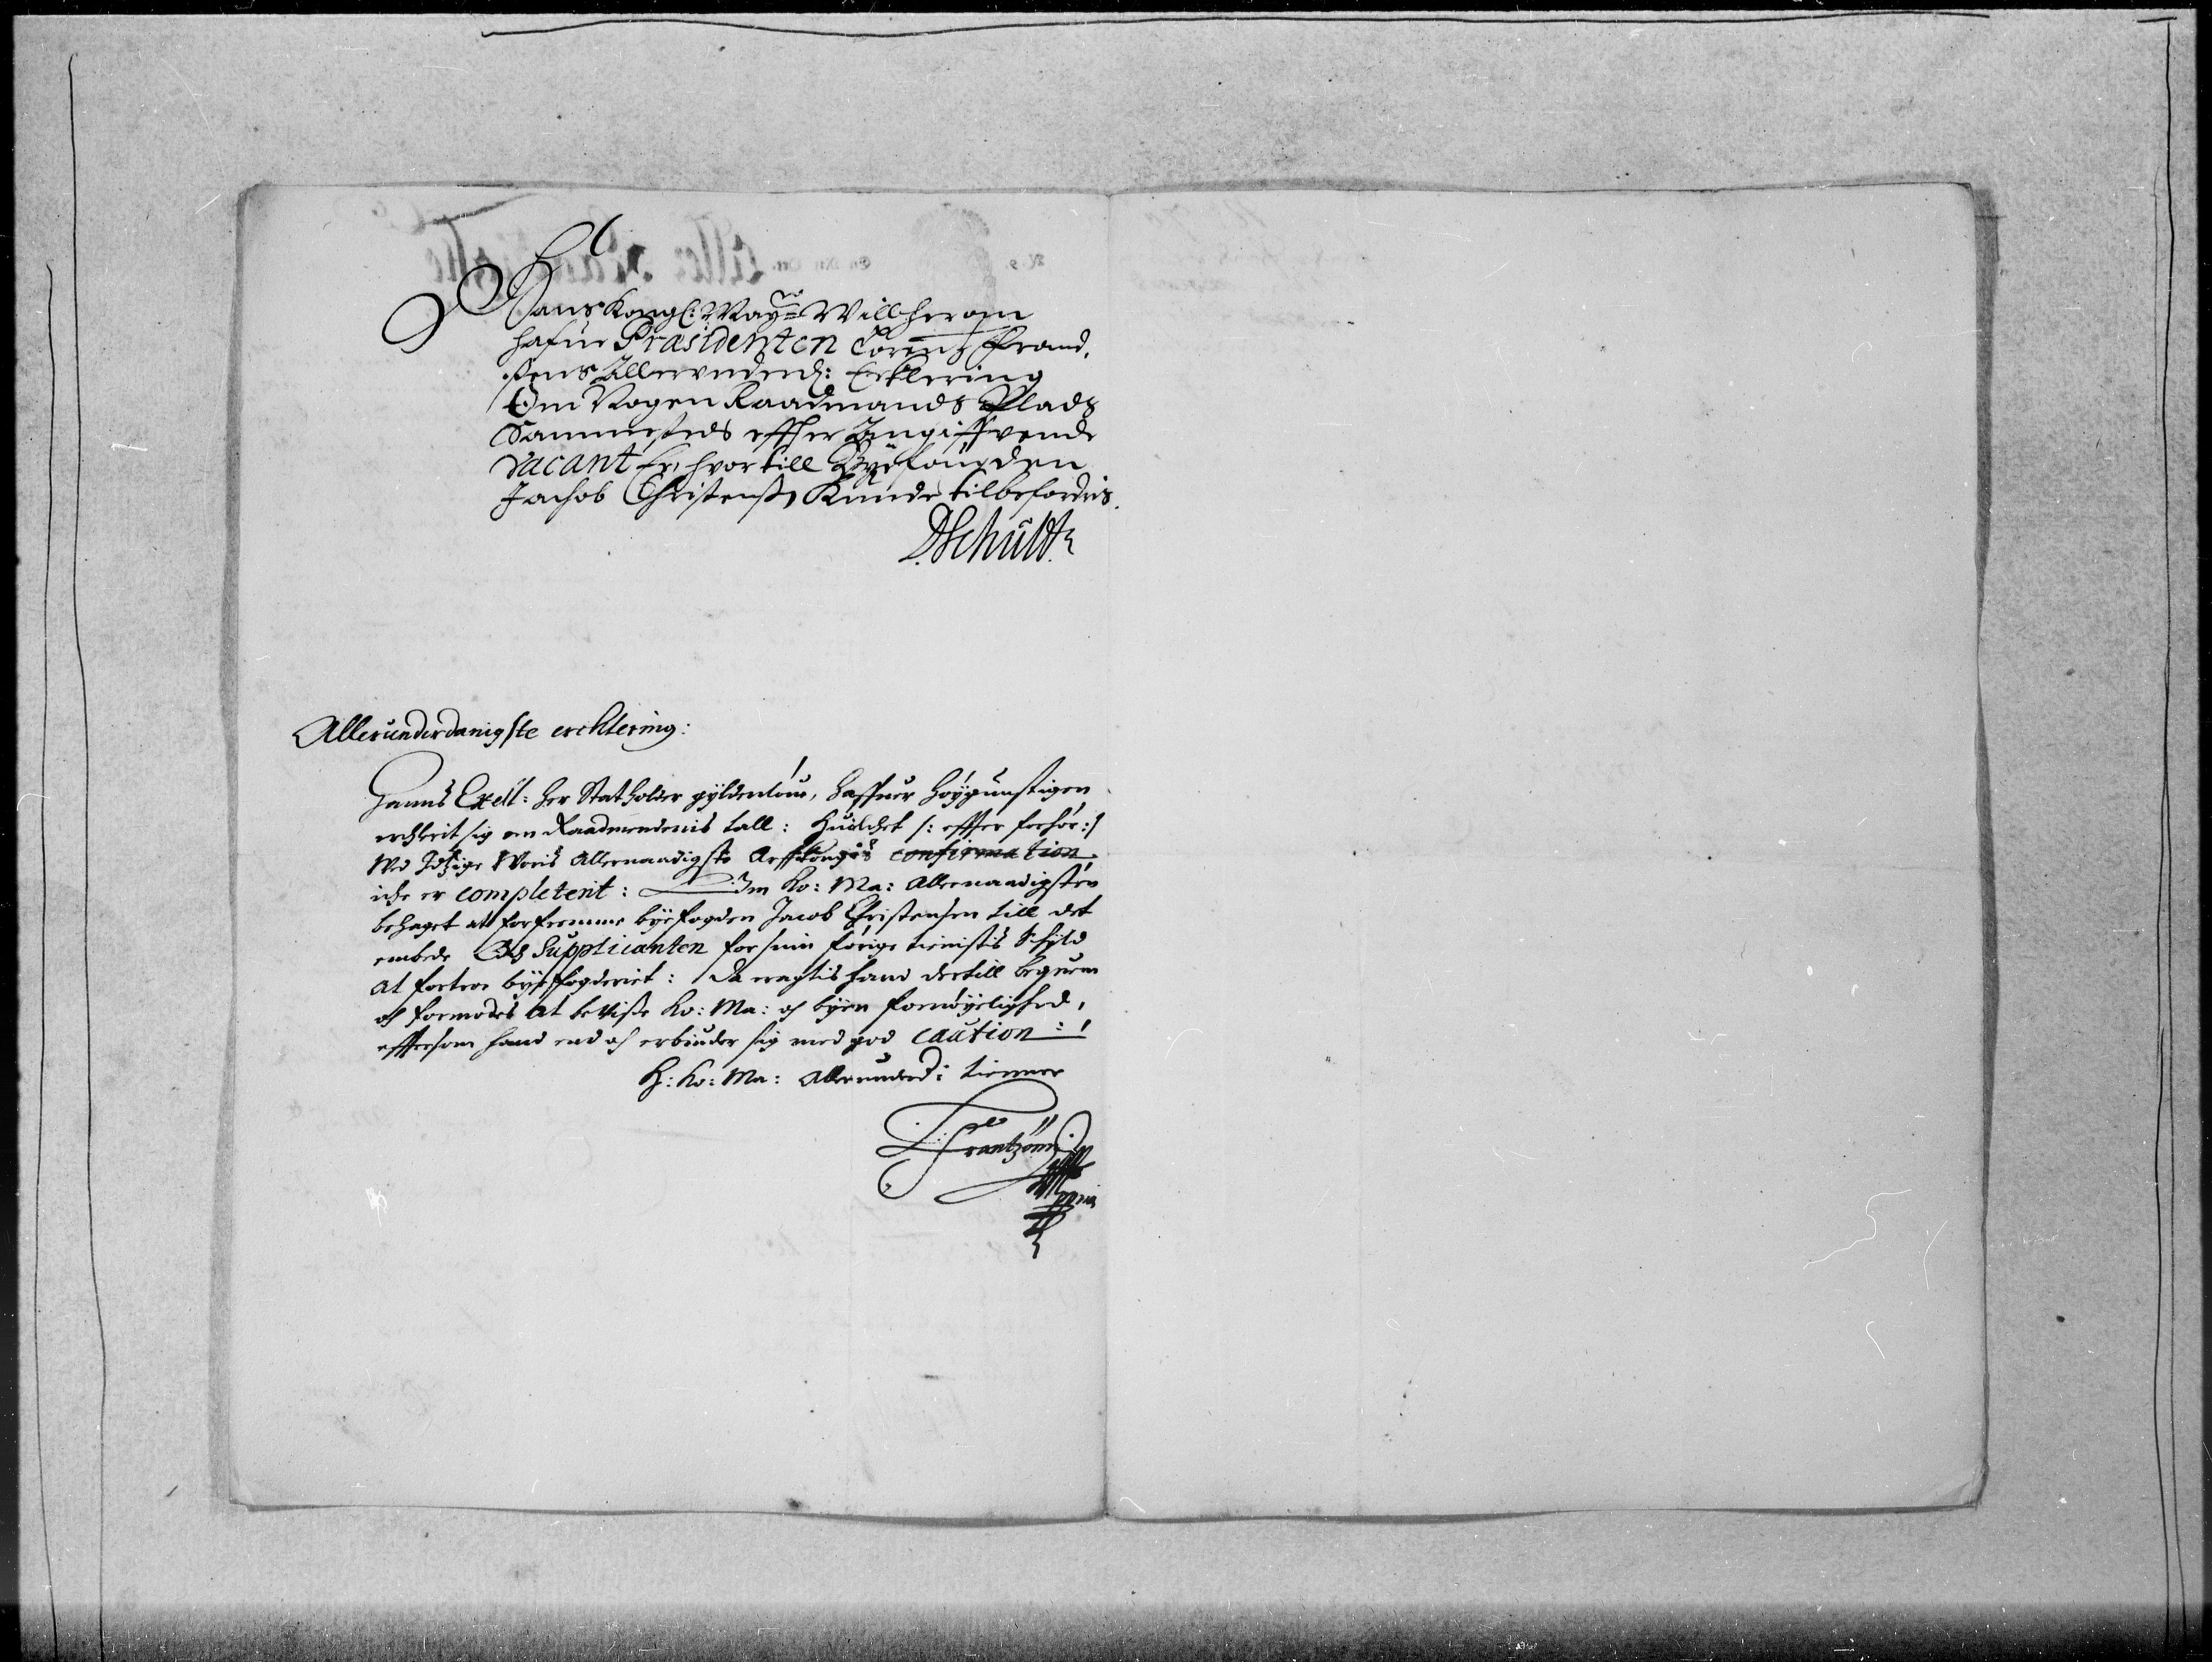 Hans Kongl: Maytz Will herom
hafue Præsidenten Lorentz Frand,
sens Allerunderd: Erklering
Om Nogen Raadmands Plads
Sammesteds effter Angiffvende
vacant Er, hvortill Byefougden
Jachob Christenß Kunde tilbefordris.
DSchult
Allerunderdanigste erchlering:
Hanns Excell: Her Statholder gyldenlöue, haffuer höygunstigen
erchlerit sig om Raadmendenis tall: Huilchet /: effter forhör:/
Med Idtzige Woris Allernaadigste Arffkongis confirmation,
iche er completerit: Im Ko: Ma: Allernaadigsten
behaget att forfremme byefogden Jacob Christensen till det
embede Och Supplicanten for sinn forige tienistis Schyld
at fortroe byefogderiet: Da eragtis hand dertill bequem
och formodes at beviße Ko: Ma: och byen fornöyelighed,
efftersom hand end och erbiuder sig med god caution:/
H: Ko: Ma: Allerunderd: tienner
L: Frantzönn